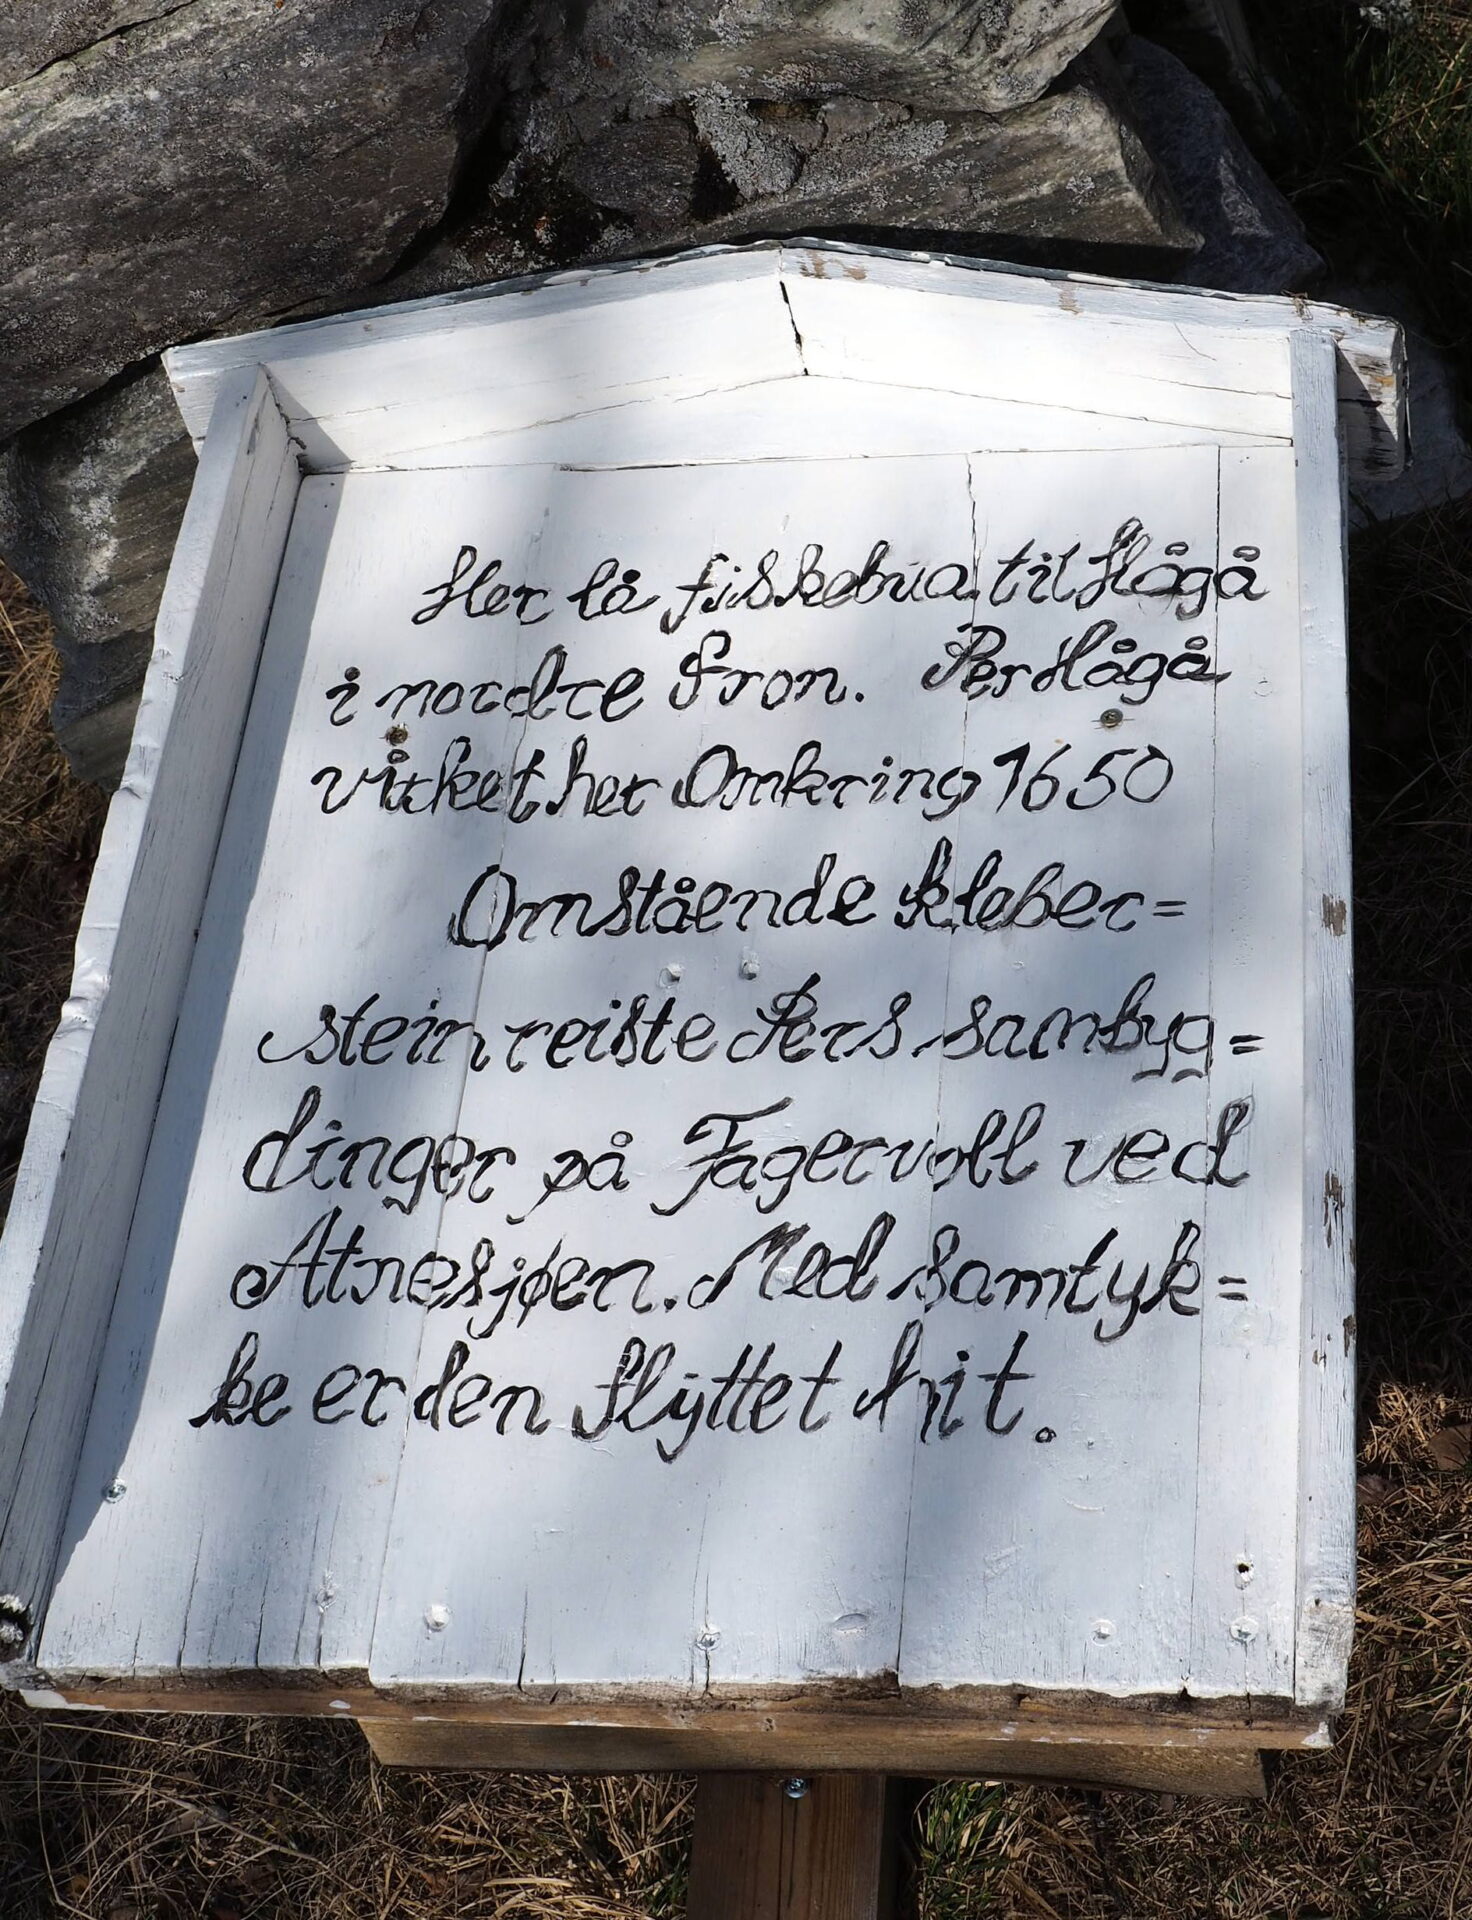 Her lå fiskebua til Hågå
i nordre Fron. Per Hågå
virket her Omkring 1650
Omstående kleber=
stein reiste Pers sambyg=
dinger på Fagervoll ved
Atnesjøen. Med samtyk=
ke er den flyttet hit.